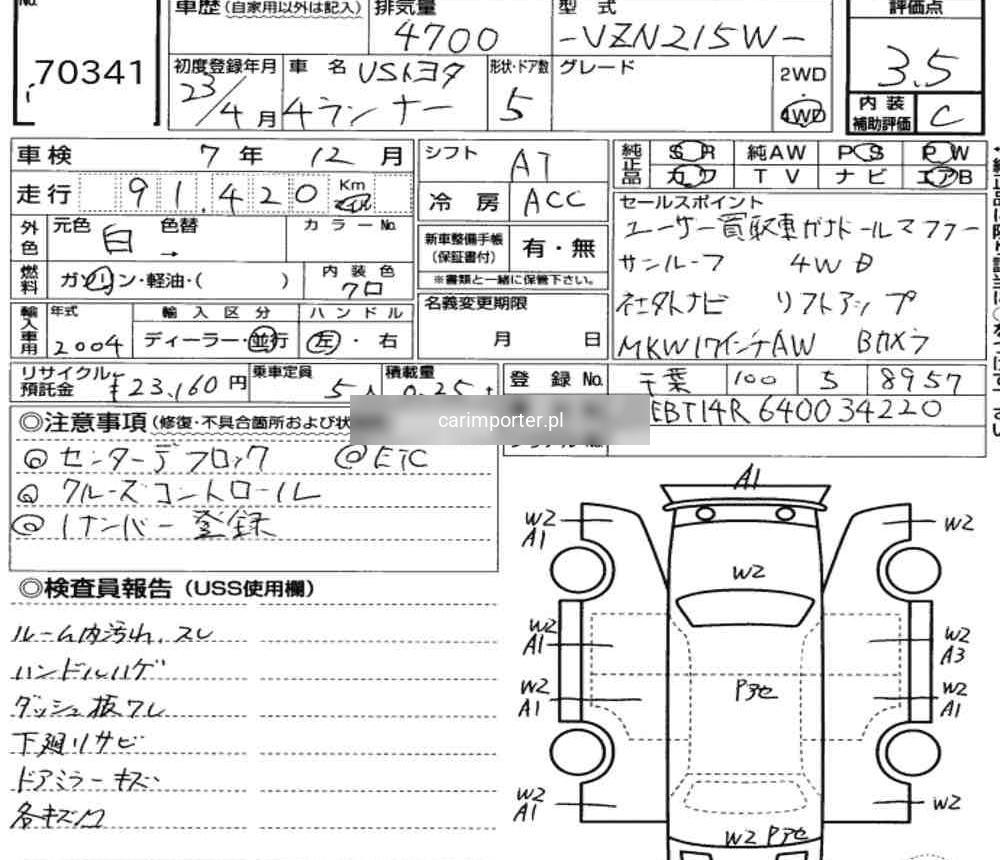 No.
70341
車歴(自家用以外は記入)
排気量
4700
型式
-VZN215W-
評価点
3.5
初度登録年月
23/4月
車名
USトヨタ
4ランナー
形状・ドア数
5
グレード
2WD
・
4WD
内装
補助評価
C
車検 7年 12月
走行 91,420 Km マイル
外色
元色 白
色替 →
カラーNo.
燃料
ガソリン・軽油・( )
内装色
クロ
輸入車用
年式
2004
輸入区分
ディーラー・並行
ハンドル
左・右
シフト AT
冷房 ACC
新車整備手帳
(保証書付)
有・無
※書類と一緒に保管下さい。
名義変更期限
月 日
純正品
SR 純AW PS PW
カワ TV ナビ エアB
セールスポイント
ユーザー買取車ガナドールマフラー
サンルーフ 4WD
社外ナビ リフトアップ
MKW17インチAW Bカメラ
リサイクル
預託金
¥23,160円
乗車定員
5人
積載量
0.25t
登録No.
千葉 100 5 8957
EBT14R640034220
carimporter.pl
◎注意事項(修復・不具合箇所および状
◎センターデフロック ◎ETC
◎クルーズコントロール
◎1ナンバー登録
◎検査員報告(USS使用欄)
ルーム内汚れ、スレ
ハンドルハゲ
ダッシュ板ワレ
下廻りサビ
ドアミラーキズ
各キズ凹
A1
W2
A1
W2
W2
W2
A1
W2
A3
W2
A1
P アセ
W2
A1
W2
A1
W2
W2 P アセ